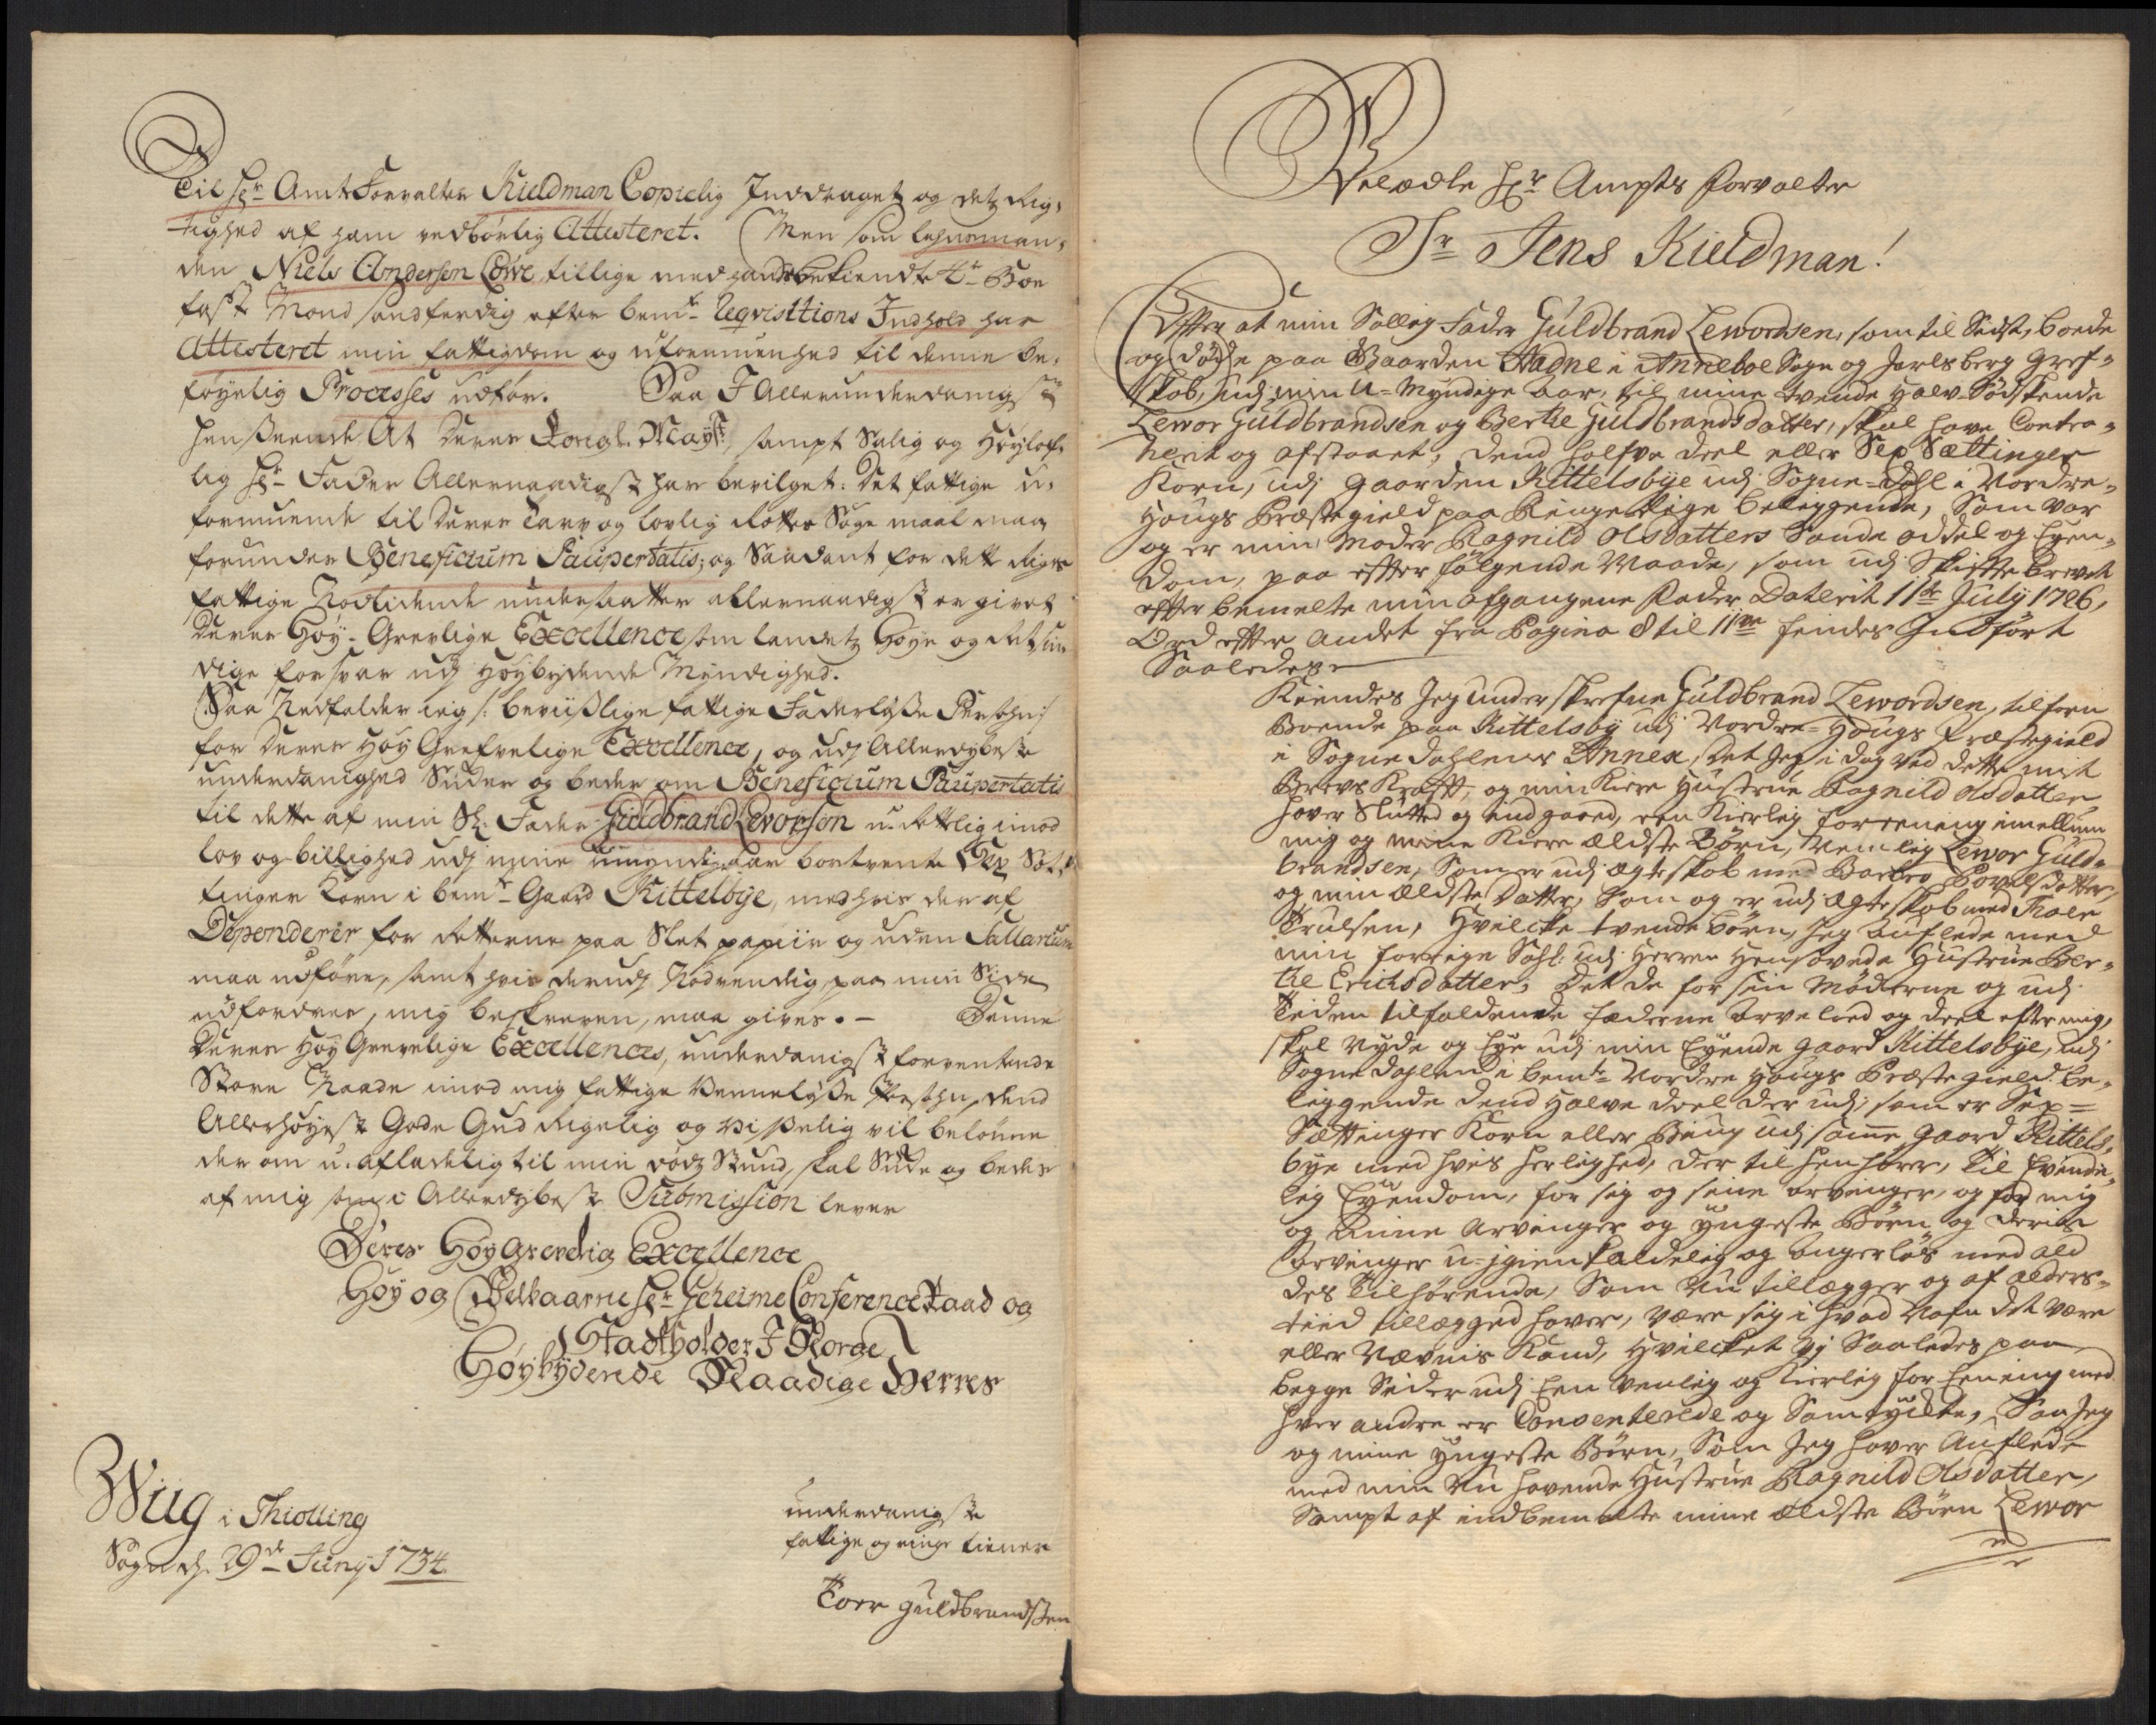 Til hr. Amt Forvalter Kieldman Copielig Inddraget og dets Rig,
tighed af ham vedbørlig Attesteret. (Men som lehnsman,
den Niels Andersen Løwe tillige med hands bekiendte 4re Boe
fast Mænd sandferdig efter bemte Reqvisitions Indhold har
Attesteret min fattigdom og uformuenhed til denne be,
føyelig Processes udfør. Saa I Allerunderdanigst
henseende At Deres Kongl. Mayst, sampt Salig og Høylof-
lig hr. Fader Allernaadigst har bevilget: Det fattige u,
formuende til deres Tarv og lovlig Rettes Søge maal maa
forundes Beneficium Paupertatis; og Saadant for dette Riges
fattige Nødlidende undersaatter allernaadigst er givet
Deres Høy-Grevlige Excellence som landets Høye og
dige forsvar udj Høybydende Myndighed.
Saa Nedfalder jeg /: beviislige fattige Faderløse Persohn:/
for Deres Høy Grefvelige Excellence, og udj Allerdybeste
underdanighed Suker og beder om Beneficium Paupertatis
til dette af min Sl. Fader Guldbrand Levorsøn u-rettelig imod
lov og billighed udj mine umyndig aar bortvente Sex Set-
tinger Korn i bemte Gaard Kittelbye, med hvis der af
Dependerer for Retterne paa Slet papiir og uden Sallarium
maa udføre, samt hvis derudj Nødvendig, paa min Side
udfordres, mig beskreven, maa gives. - Denne
Deres Høy Grevelige Excellences, underdanigst forventende
Store Naade imod mig fattige Venneløse Persohn, dend
Allerhøyeste Gode Gud Rigelig og Visselig vil belønne
der om u-afladelig til min døds Stund, skal Sukes og bedes
af mig som i Allerdybeste Submission lever
Deres Høy Grevelig Excellence
Høy og Velbaarne hr. Geheime Conference Raad og
Stadtholder I Norge
Høybydende Naadige Herres
Wiig i Thiølling
Sogn d. 29de Juny 1734.
underdanigste
fattige og ringe tienere
Toer Guldbrandsen
Velædle Hr. Ampts Forvalter
Sr. Jens Kieldman!
Efter at min Sallig Fader Guldbrand Lewordsen, som til Sidst, boede
og døde paa Gaarden Aadne i Anneboe Sogn og Jarlsberg Gref-
skab, udj min U-Myndige Aar, til mine tvende Halv-Sødskende
Lewor Guldbrandsen og Berthe Guldbrandsdatter, skal have Contra-
herit og afstaaet, dend halfve deel eller Sex Sættinger
Korn, udj Gaarden Kittelsbye udj Sogne-Dahl i Nordre-
Hougs Præstegield paa Ringerige beliggende, Som var
og er min Moder Ragnild Olsdatters Sande oddel og Eyen-
dom, paa efter følgende Maade, som udj Skifte brevet
efter bemelte min afgangene Fader Daterit 11te July 1726,
Ord efter andet fra Pagina 8 til 11ve findes Indført
Saaledes
Kiendes Jeg underskrefne Guldbrand Lewordsen, tilforn
Boende paa Kittelsby udj Nordre-Hougs Præstegield
i Sognedahlens Annex, Det Jeg i dag ved dette mit
Brevs Krafft, og min Kiere Hustrue Ragnild Olsdatter
haver Slutted og indgaaed, een Kierlig foreening imellum
mig og mine Kiere ældste Børn, Nemlig Lewor Guld-
brandsen, Som er udj ægteskab med Barbro Povelsdatter,
og min ældste Datter, Som og er udj ægteskab med Troer
Trulsen, Hvilcke tvende børn, Jeg auflede med
min forrige Sahl: udj Herren Hensovede Hustrue Ber-
the Erichsdatter, Det de for sin Møderne og udj
Tiden tilfaldende fæderne Arve lod og deel efter mig,
skal Nyde og Eye udj min Eyende gaard Kittelsbye, udj
Sognedahlen i bemte Nordre Hougs Præstegield be,
liggende dend Halve deel der udj, som er Sex-
Sættinger Korn eller Biug udj samme gaard Kittels-
bye med hvis herlighed, der til henhører, til Evinde-
lig Eyendom, for sig og sine arvinger, og for mig
og Mine Arvinger og Yngeste Børn og deris
Arvinger u-igienkaldelig og Angerløs med ald
des tilhørende, Som Nu tillegger og af alders-
tiid tillegged haver, være sig i hvad Nafn det være
eller Nævnis Kand, Hvilcket Vj Saaledes paa
begge Sider udj Een Venlig og Kierlig for Eening med
hver andre er Consenterede og Samtyckte, Saa Jeg
og mine yngeste Børn, Som Jeg haver Auflede
med min Nu havende Hustrue Ragnild Olsdatter,
Sampt af indbemelte mine ældste Børn Lewor